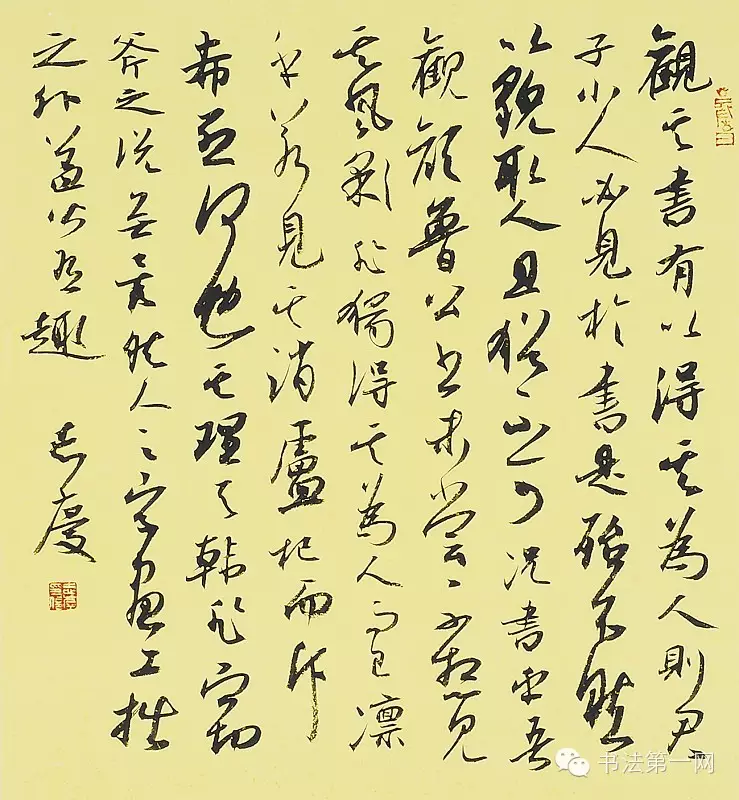 觀其書有以得其為人則君
子小人必見於書是殆不然
以貌取人且猶不可況書乎吾
觀顏魯公書未嘗不想見
其風彩非獨得其為人而已凛
乎若見其誚盧杞而叱
希烈何也其理與韓非竊
斧之說無異然人之字畫工拙
之外蓋皆有趣 慶
书法第一网